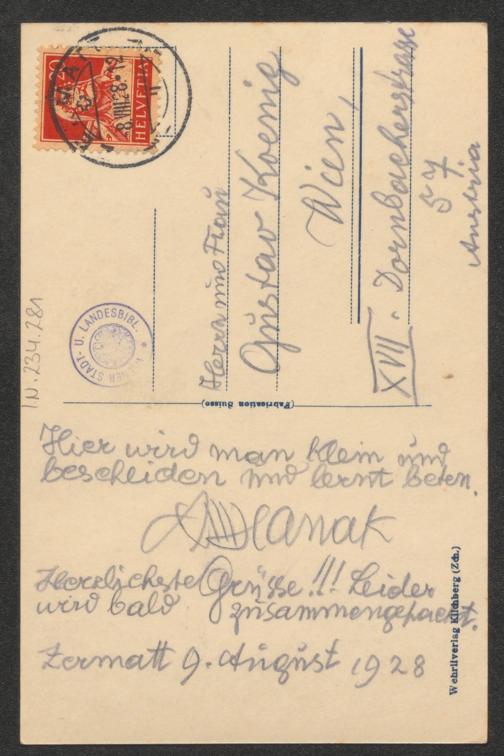 Hier wird man klein und
bescheiden und lernt beten.
Hanak
Herzlichste Grüsse!!! Leider
wird bald zusammengepackt.
Zermatt 9. August 1928
Herrn und Frau
Gustav Koenig
Wien,
XVII. Dornbacherstrasse
57
Austria
20
HELVETIA
WIENER STADT- U. LANDESBIBL.
I.N. 234.281
(Fabrication Suisse)
Wehrliverlag Kilchberg (Zch.)